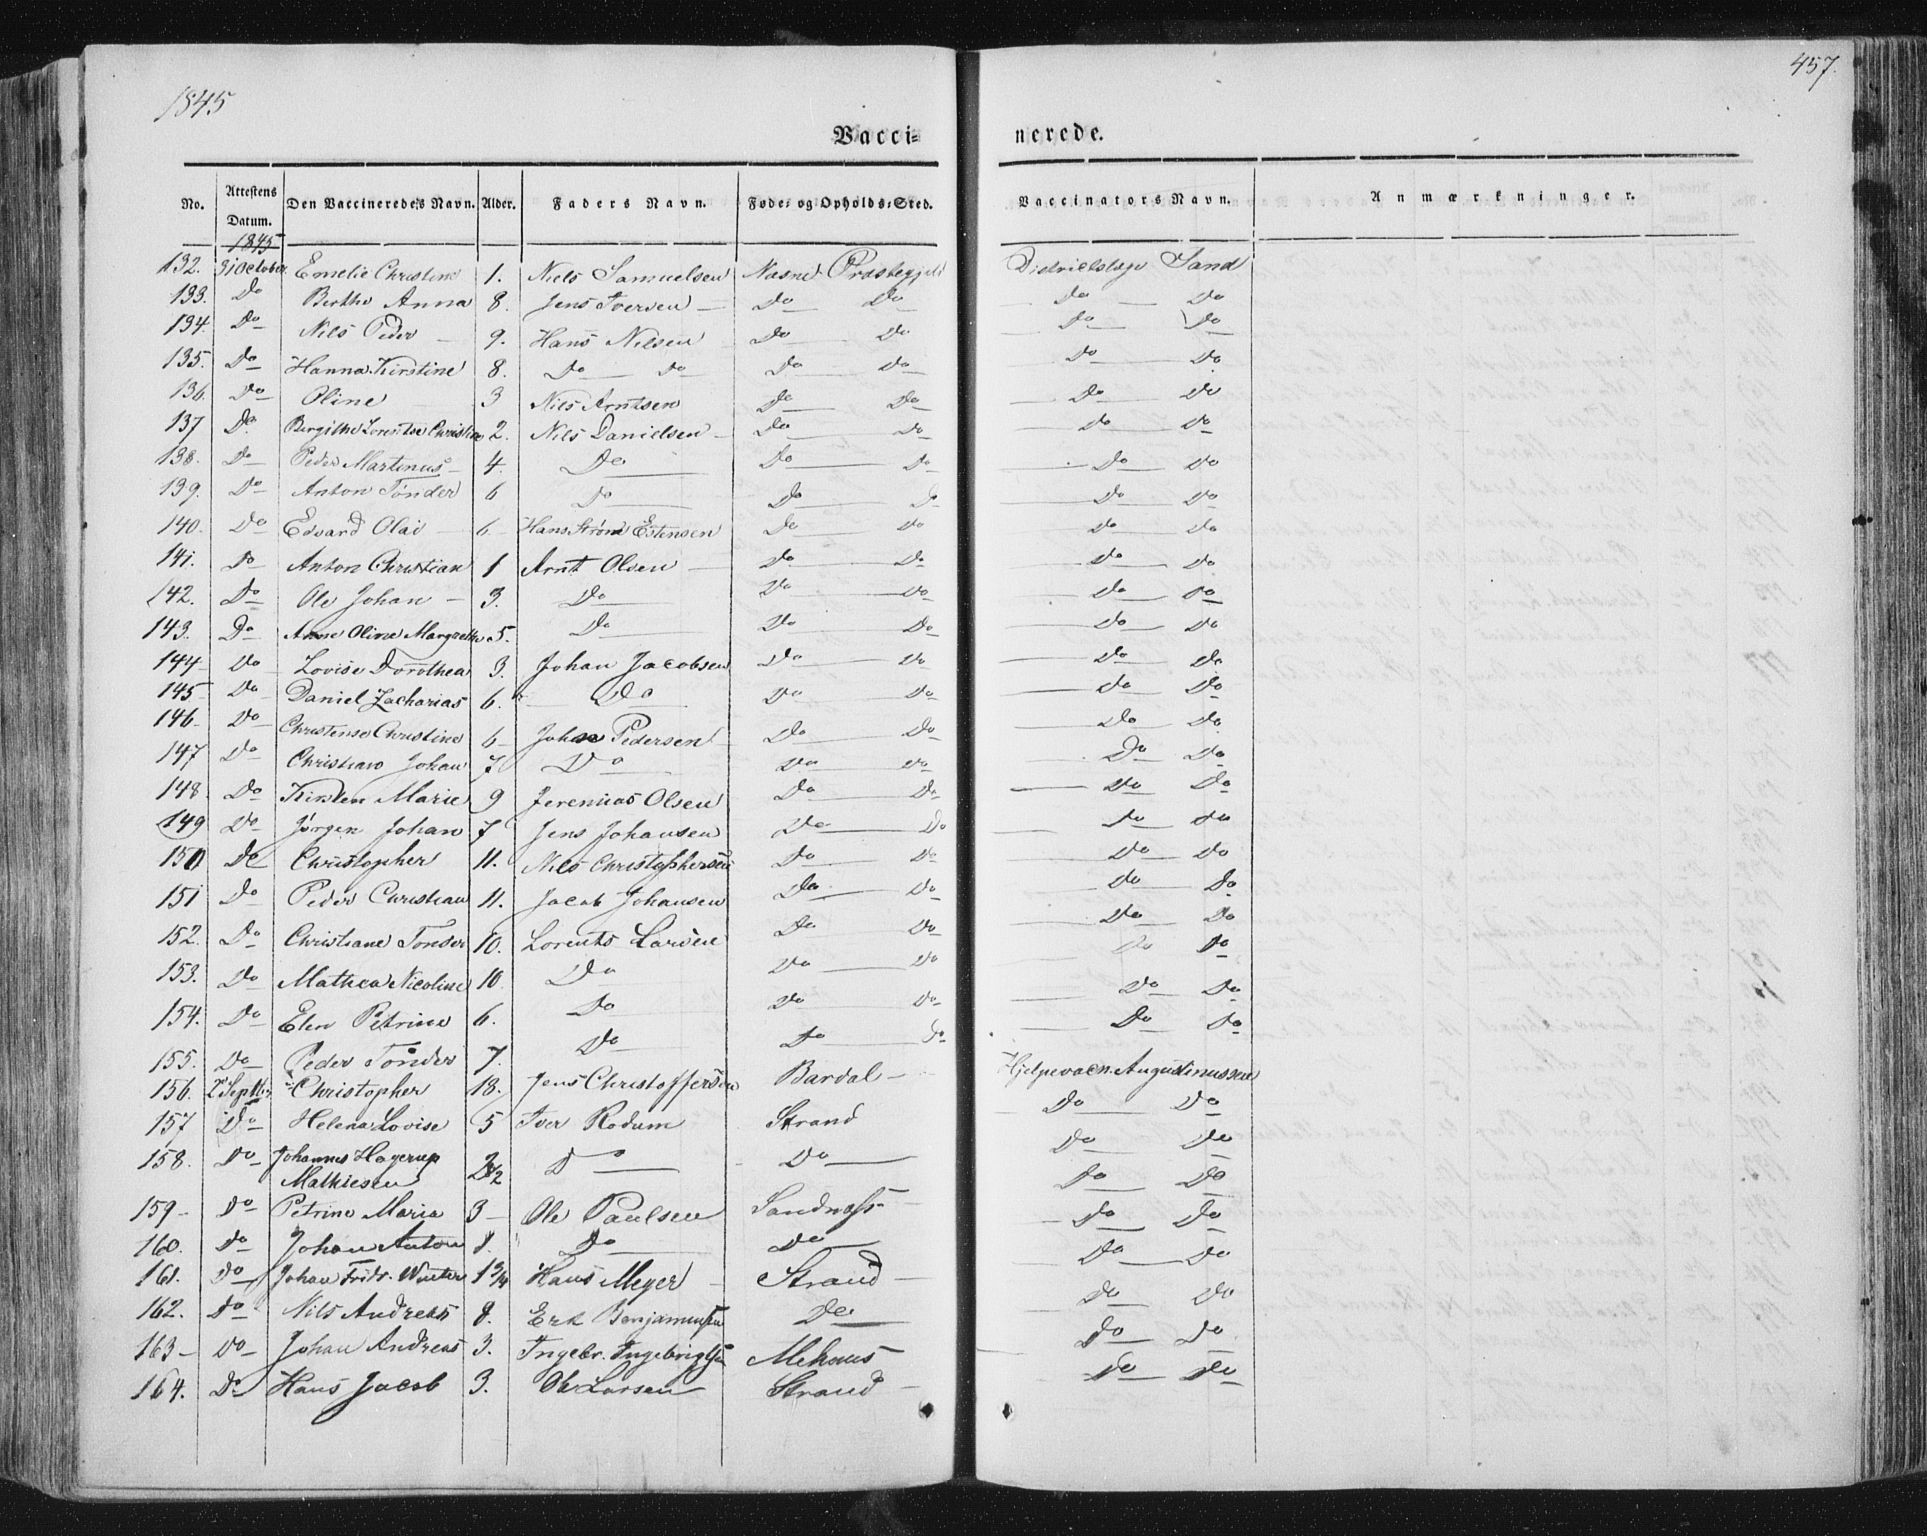 1845
457.
Vacci= nerede.
No. Attestens Datum. Den Vaccineredes Navn. Alder. Faders Navn. Føde- og Opholds-Sted. Vaccinators Navn. Anmærkninger.
1845
132. 31 October Emelie Christine 1. Niels Samuelsen Nesne Præstegjeld Districtslæge Sand
133. Do Berthe Anna 8. Jens Iversen Do Do Do Do
134. Do Nils Peder 9. Hans Nilsen Do Do Do Do
135. Do Hanna Kirstine 8. Do Do Do Do Do Do
136. Do Oline 3 Nils Arntsen Do Do Do Do
137 Do Bergithe Lorentse Christine 2. Nils Danielsen Do Do Do Do
138. Do Peder Martinus 4. Do Do Do Do Do
139. Do Anton Tønder 6 Do Do Do Do Do
140. Do Edvard Olai 6 Hans Strøm Estensen Do Do Do Do
141. Do Anton Christian 1 Arnt Olsen Do Do Do Do
142. Do Ole Johan 3. Do Do Do Do Do
143. Do Anne Oline Margrethe 5. Do Do Do Do Do
144 Do Lovise Dorothea 3. Johan Jacobsen Do Do Do Do
145 Do Daniel Zacharias 6. Do Do Do Do Do
146 Do Christense Christine 6 Johan Pedersen Do Do Do Do
147 Do Christian Johan 7 Do Do Do Do Do
148 Do Kirsten Marie 9 Jeremias Olsen Do Do Do Do
149 Do Jørgen Johan 7 Jens Johansen Do Do Do Do
150 Do Christopher 11. Nils Christophersen Do Do Do Do
151 Do Peder Christian 11. Jacob Johansen Do Do Do Do
152. Do Christiane Tønder 10. Lorents Larsen Do Do Do Do
153. Do Mathea Nicoline 10 Do Do Do Do Do
154. Do Elen Petrine 6. Do Do Do Do Do
155. Do Peder Tønder 7. Do Do Do Do Do
156. 2 Septbr Christopher 18. Jens Christoffersen Bardal Hjelpevacn. Augustinussen
157 Do Helena Lovise 5 Iver Rodum Strand Do Do
158. Do Johannes Hagerup 2½ Do Do Do Do
Mathiesen Do Do
159 Do Petrine Maria 3 Ole Paulsen Sandnæss Do Do
160. Do Johan Anton 8. Do Do Do Do
161. Do Johan Fridr. Winter 1¾ Hans Meyer Strand Do Do
162. Do Nils Andreas 8. Erk Benjaminsen Do Do Do
163 Do Johan Andreas 3. Ingebr. Ingebrigtsen Mehuus Do Do
164. Do Hans Jacob 3. Ole Larsen Strand